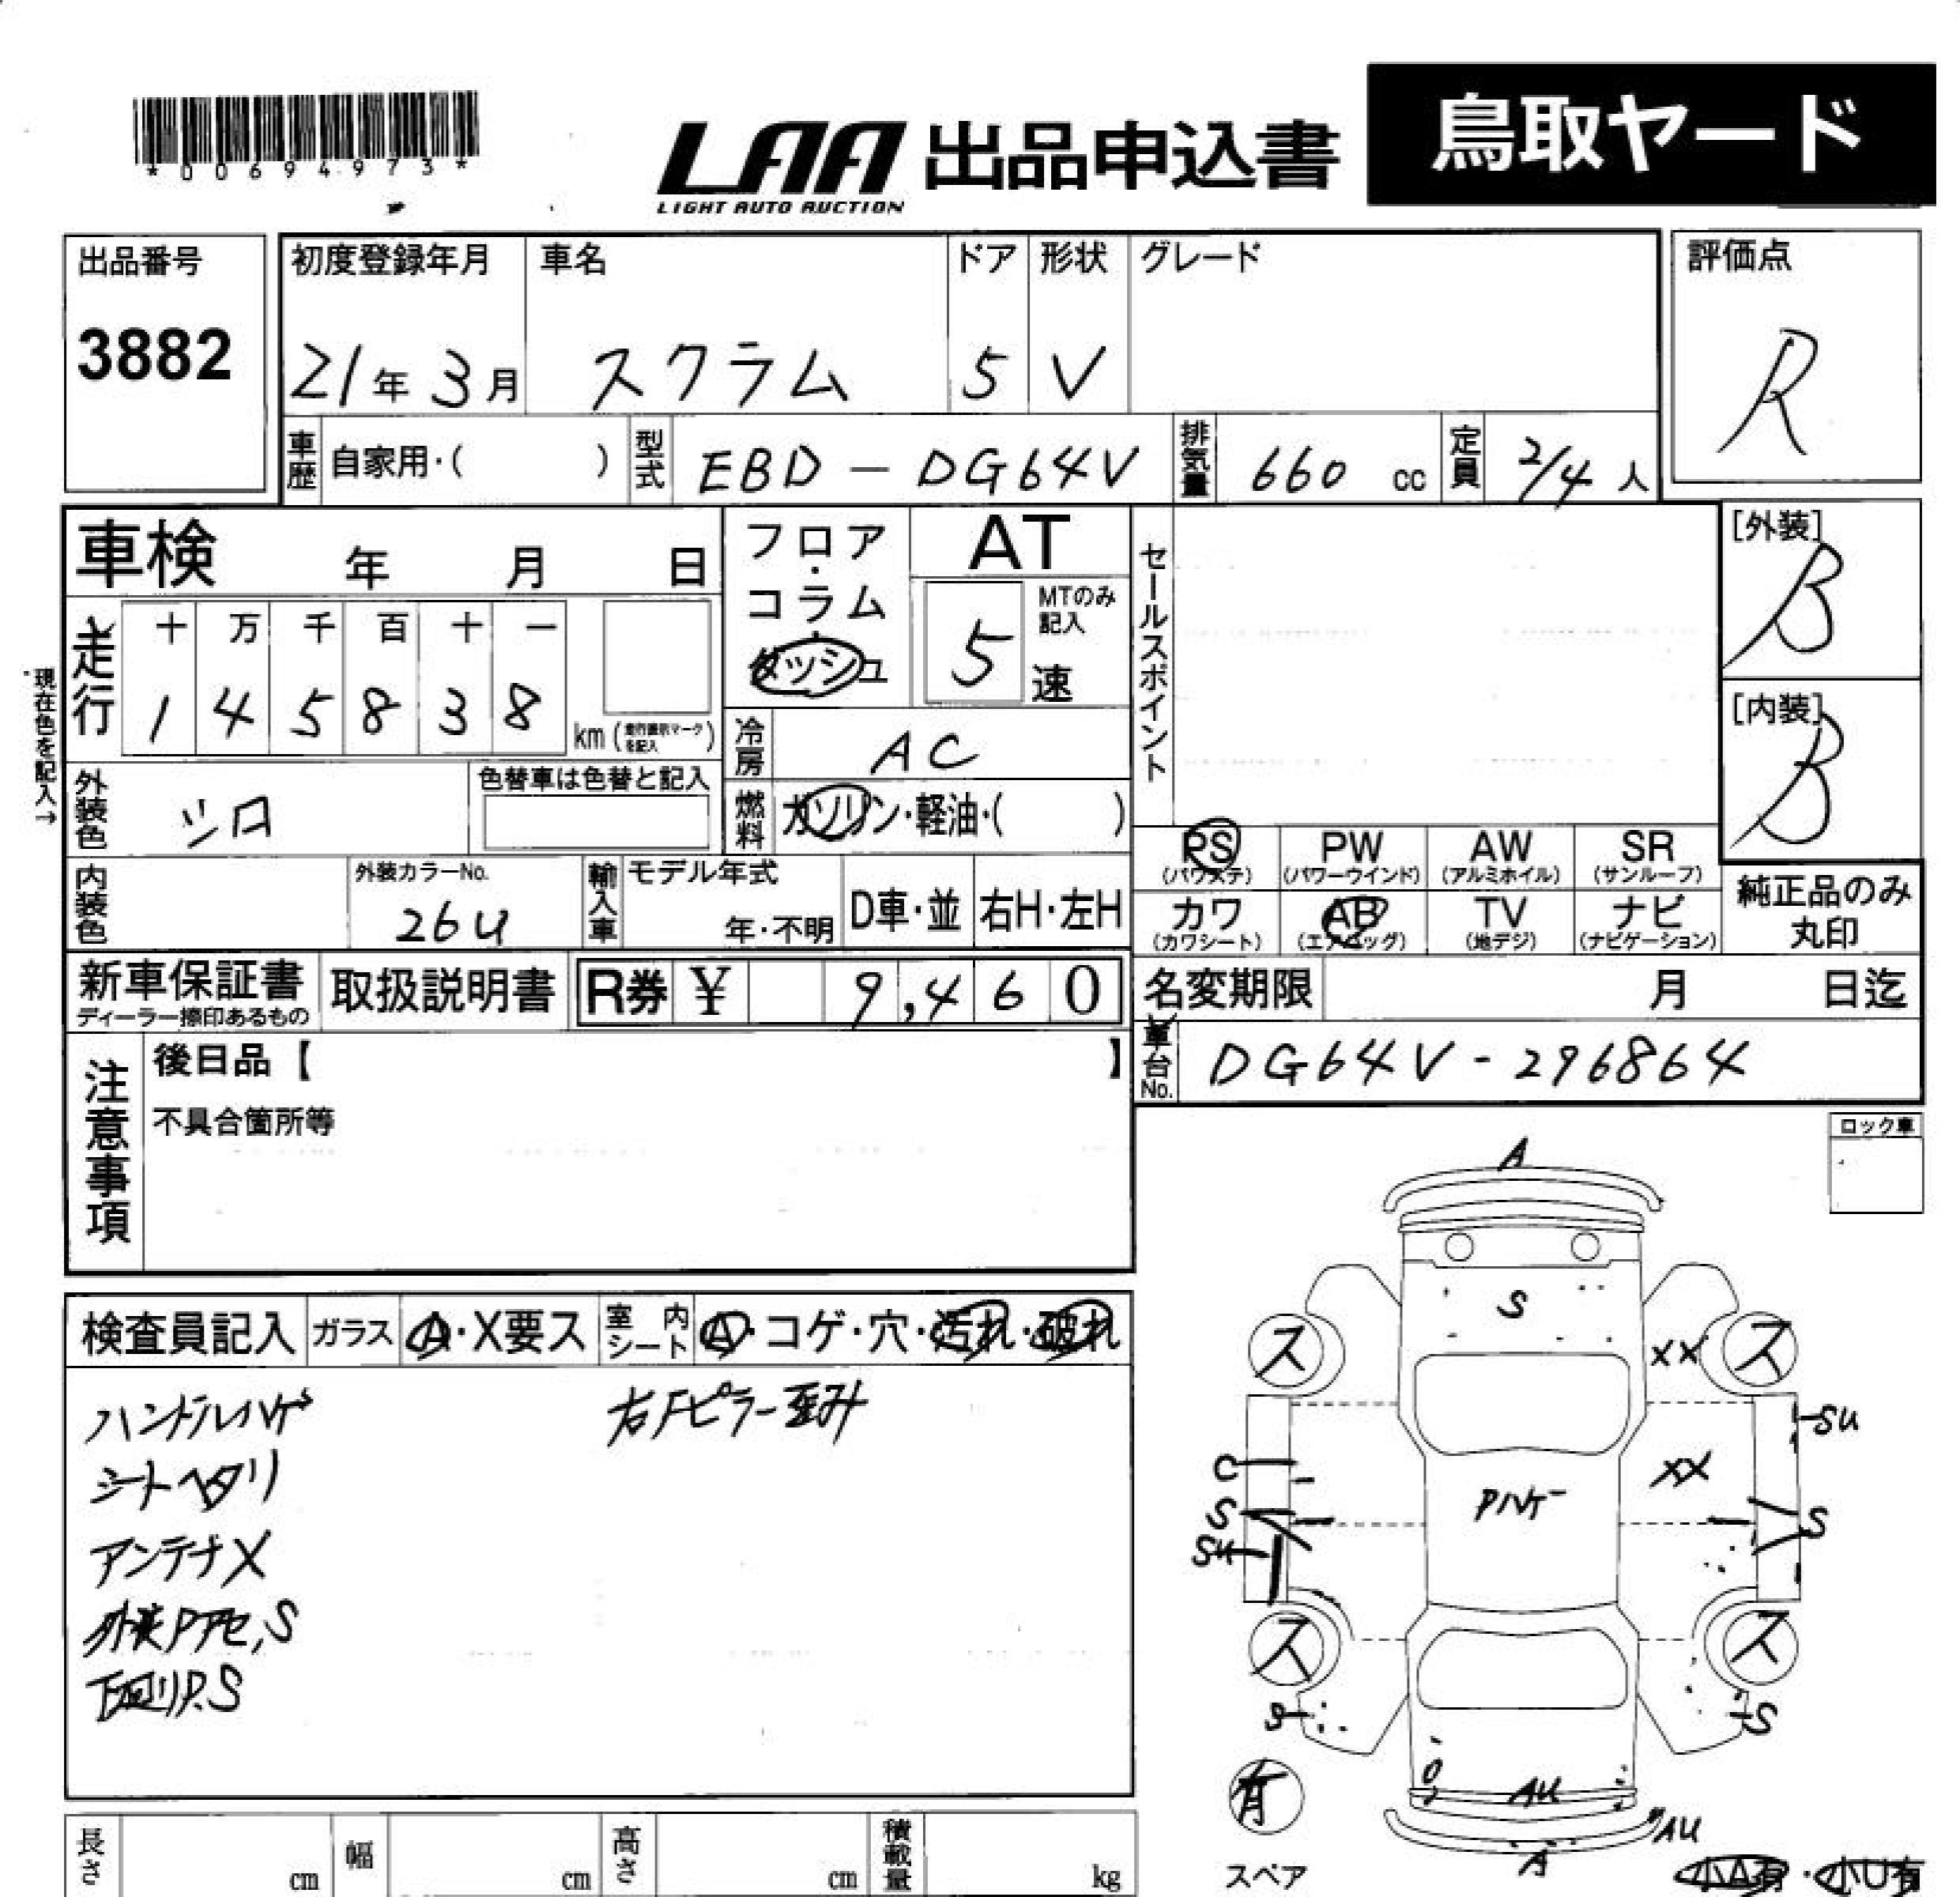 *00694973*
LAA 出品申込書 鳥取ヤード
LIGHT AUTO AUCTION
出品番号 初度登録年月 車名 ドア 形状 グレード 評価点
3882 21年3月 スクラム 5 V R
車歴 自家用・( ) 型式 EBD-DG64V 排気量 660 cc 定員 2/4 人
車検 年 月 日 フロア・コラム・ダッシュ AT セールスポイント [外装] B
5 速 MTのみ記入
走行 十 万 千 百 十 一
1 4 5 8 3 8 km (走行表示マークを記入)
[内装] B
現在色を記入→
冷房 AC
外装色 シロ 色替車は色替と記入 燃料 ガソリン・軽油・( )
PS PW AW SR
(パワステ) (パワーウインド) (アルミホイル) (サンルーフ)
内装色 外装カラーNo. 26U 輸入車 モデル年式 年・不明 D車・並 右H・左H
カワ AB TV ナビ 純正品のみ丸印
(カワシート) (エアバッグ) (地デジ) (ナビゲーション)
新車保証書 取扱説明書 R券 ¥ 9,460 名変期限 月 日迄
ディーラー捺印あるもの
車台No. DG64V-296864
注意事項 後日品【 】
不具合箇所等
ロック車
検査員記入 ガラス A・X要ス 室内シート A・コゲ・穴・汚れ・破れ
ハンドルハゲ 右Fピラー歪み
シートヘタリ
アンテナX
外装Pアセ,S
下回りP.S
A
S
ス XX ス
SU
C XX
S Pハゲ S
SU
ス ス
S S
有 AU
AU
A
スペア 小A有・小U有
長さ cm 幅 cm 高さ cm 積載量 kg